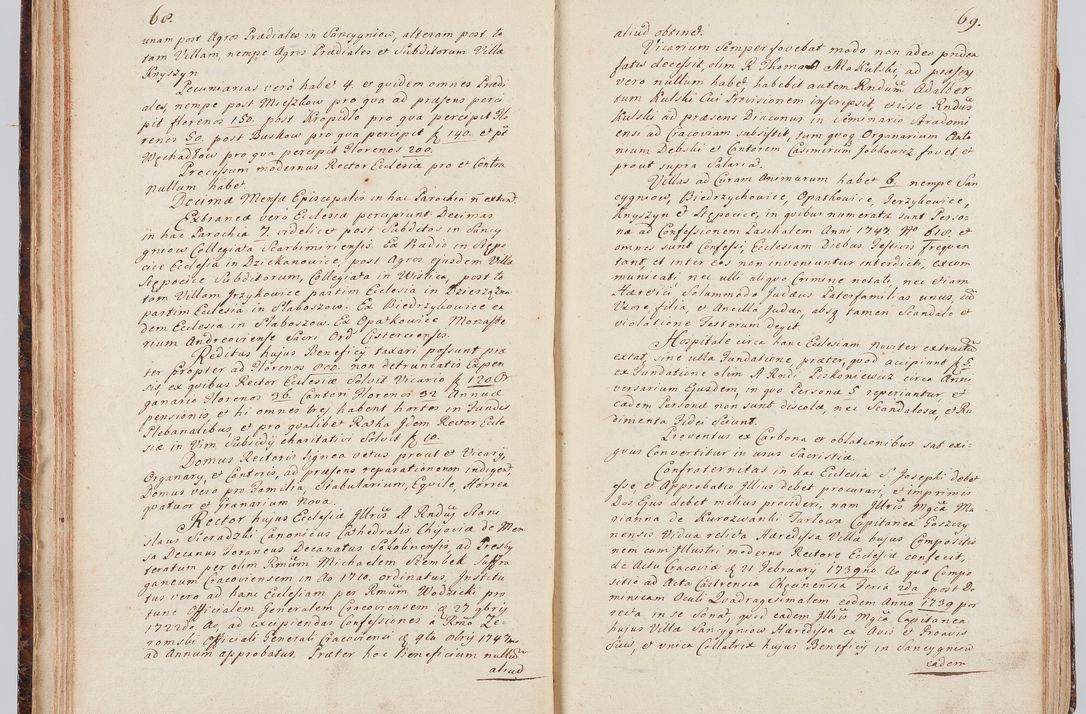 68.
unam post Agros Prædiales in Sancygniow, alteram post to
tam Villam, nempe Agros Prædiales et Subditorum Villa
Knyszyn
Pecuniarias verò habet 4. et quidem omnes Prædi
ales, nempe post Mieszkow pro qua ad præsens perci
pit florenos 150. post Kropidło pro qua percipit Flo
renos 50. post Buskow pro qua percipit f. 140. et post
Węchadłow pro qua percipit Florenos 200.
Processum modernus Rector Ecclesiæ pro et Contra
nullum habet.
Decimæ Mensæ Episcopalis in hac Parochia n̄ extant.
Extraneæ verò Ecclesiæ percipiunt Decimas
in hac Parochia 7. videlicet post Subditos in Sancy
gniow Collegiata Scarbimiriensis. Ex Prædio in Stępo
cice Ecclesia in Dziekanowice post Agros ejusdem Villæ
Stępocice Subditorum, Collegiata in Wislica, post to
tam Villam Jrzykowice partim Ecclesia in Dzierzążna
partim Ecclesia in Słaboszow. Ex Biedrzykowice ea
dem Ecclesia in Słaboszow. Ex Opatkowice Monaste
rium Andreoviense Sacri Ord. Cisterciensis.
Reditus hujus Beneficij taxari possunt præ
ter propter ad Florenos 800. non detruncatis Expen
sis, ex quibus Rector Ecclesiæ Solvit Vicario f. 120. Or
ganario Florenos 36. Cantori Florenos 32. Annuæ
pensionis, et hi omnes tres habent hortos in Fundis
Plebanalibus, et pro qualibet Ratha Jdem Rector Eccle
siæ in Vim Subsidij charitativi Solvit f. 10.
Domus Rectoris lignea vetus prout et Vicarij,
Organarij, et Cantoris, ad præsens reparationem indiget.
Domus vero pro Familia, Stabularium, Equile, Horrea
quatuor et Granarium Nova.
Rector hujus Ecclesiæ Jllrūs A Rndūs Stani
slaus Sieradzki Canonicus Cathedralis Chyoviæ de Men
sa Decanus Foraneus Decanatus Sokolinensis, ad Presby
teratum per olim Rmūm Michaelem Szembek Suffra
ganeum Cracoviensem in Ao 1710. ordinatus, Institu
tus vero ad hanc Ecclesiam per Rmūm Wodzicki pro
tunc Officialem Generalem Cracoviensem d. 27 9bris
1722do Ao, ad excipiendas Confessiones a Rmō Ze
romski Officiali Generali Cracoviensi d. 9ta 8bris 1747mo
ad Annum approbatus. Præter hoc Beneficium nullum
aliud
69.
aliud obtinet.
Vicarium Semper fovebat modo non adeo pridem
fatis decessit olim R. Thomas Makulski ad præsens
vero nullum habet, habebit autem Rndūm Adalber
tum Kulski Cui Provisionem inscripsit, et iste Rndūs
Kulski ad præsens Diaconus in Seminario Stradomi
ensi ad Cracoviam subsistit, tum quoq Organarium Anto
nium Debski et Cantorem Casimirum Jobkowicz fovet et
prout supra Salariat.
Villas ad Curam Animarum habet 6. nempe San
cygniow, Biedrzychowice, Opatkowice, Jerzykowice,
Knyszyn et Stępocice, in quibus numeratæ sunt Perso
næ ad Confessionem Paschalem Anni 1747. No 618. et
omnes sunt Confessi, Ecclesiam Diebus Festivis Frequen
tant, et inter eos non inveniuntur interdicti, excom
municati, nec ulli aliquo Crimine notati, nec etiam
Hæretici Solummodo Judæus Paterfamilias unus, cū
Uxore, filia, et Ancilla Judæa, absq tamen Scandalo et
violatione Festorum degit.
Hospitale circa hanc Ecclesiam noviter extructū
extat, sine ulla Fundatione, præter, quod accipiunt f. 5
ex Fundatione olim A Rndi. Piskoniewicz circa Anni
versarium Ejusdem, in quo Personæ 5 reperiuntur, et
eædem Personæ non sunt discolæ, nec Scandalosæ, et Ru
dimenta Fidei Sciunt.
Proventus ex Carbona et oblationibus sat exi
guus Convertitur in usus Sacristiæ.
Confraternitas in hac Ecclesia S. Josephi debet
esse, et Approbatio Jllius debet procurari, et imprimis
Dos Ejus debet melius provideri, nam Jllrīs Mgcā Ma
rianna de Kurozwanki Tarłowa Capitanea Goszczy
nensis Vidua relicta Hæredissa Villæ hujus Compositio
nem cum Jllustri moderno Rectore Ecclesiæ confecit,
de Actu Cracoviæ d. 21 February 1739no Ao quæ Compo
sitio ad Acta Castrensia Chęcinensia Feria 2da post Do
minicam Oculi Quadragesimalem eodem Anno 1739 por
recta in se Sonat, quod eadem Jllrīs Mgcā Capitanea
hujus Villæ Sancygniow Hæredissa ex Avis et Proavis
Suis, et unica Collatrix hujus Beneficij in Sancygniow
eadem